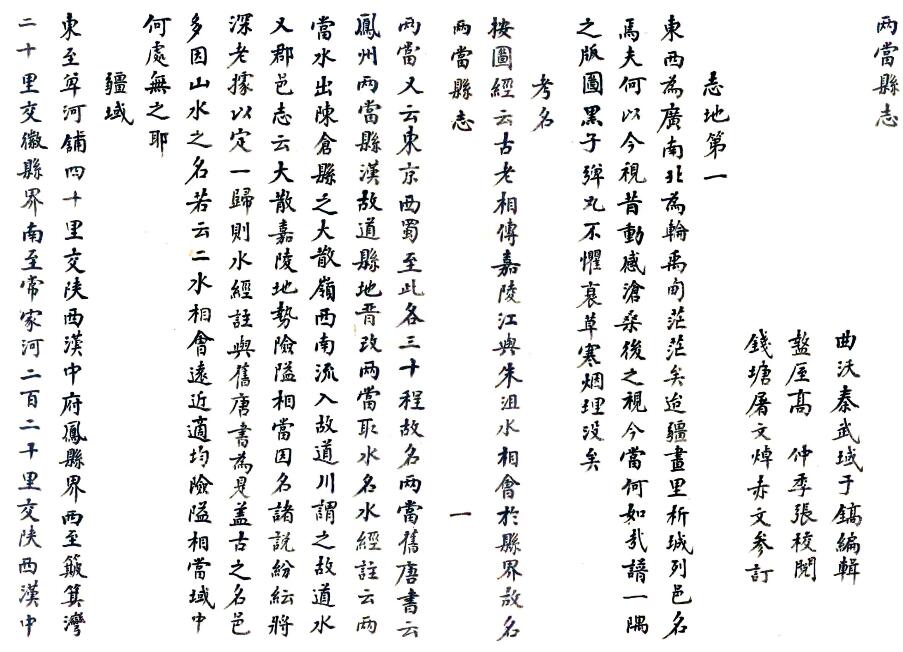 兩當縣志
曲沃秦武域于鎬編輯
盩厔高　仲季張校閱
錢塘屠文焯赤文參訂
志地第一
東西為廣南北為輪禹甸茫茫矣迨疆畫里析城列邑名
焉夫何以今視昔動感滄桑後之視今當何如哉譜一隅
之版圖黑子彈丸不懼衰草寒烟埋没矣
考名
按圖經云古老相傳嘉陵江與朱沮水相會於縣界故名
兩當縣志
一
兩當又云東京西蜀至此各三十程故名兩當舊唐書云
鳳州兩當縣漢故道縣地晋改兩當取水名水經註云兩
當水出陳倉縣之大散嶺西南流入故道川謂之故道水
又郡邑志云大散嘉陵地勢險隘相當因名諸説紛紜將
深老據以定一歸則水經註與舊唐書為是盖古之名邑
多因山水之名若云二水相會遠近適均險隘相當域中
何處無之耶
疆域
東至草河鋪四十里交陕西漢中府鳳縣界西至簸箕灣
二十里交徽縣界南至常家河二百二十里交陕西漢中